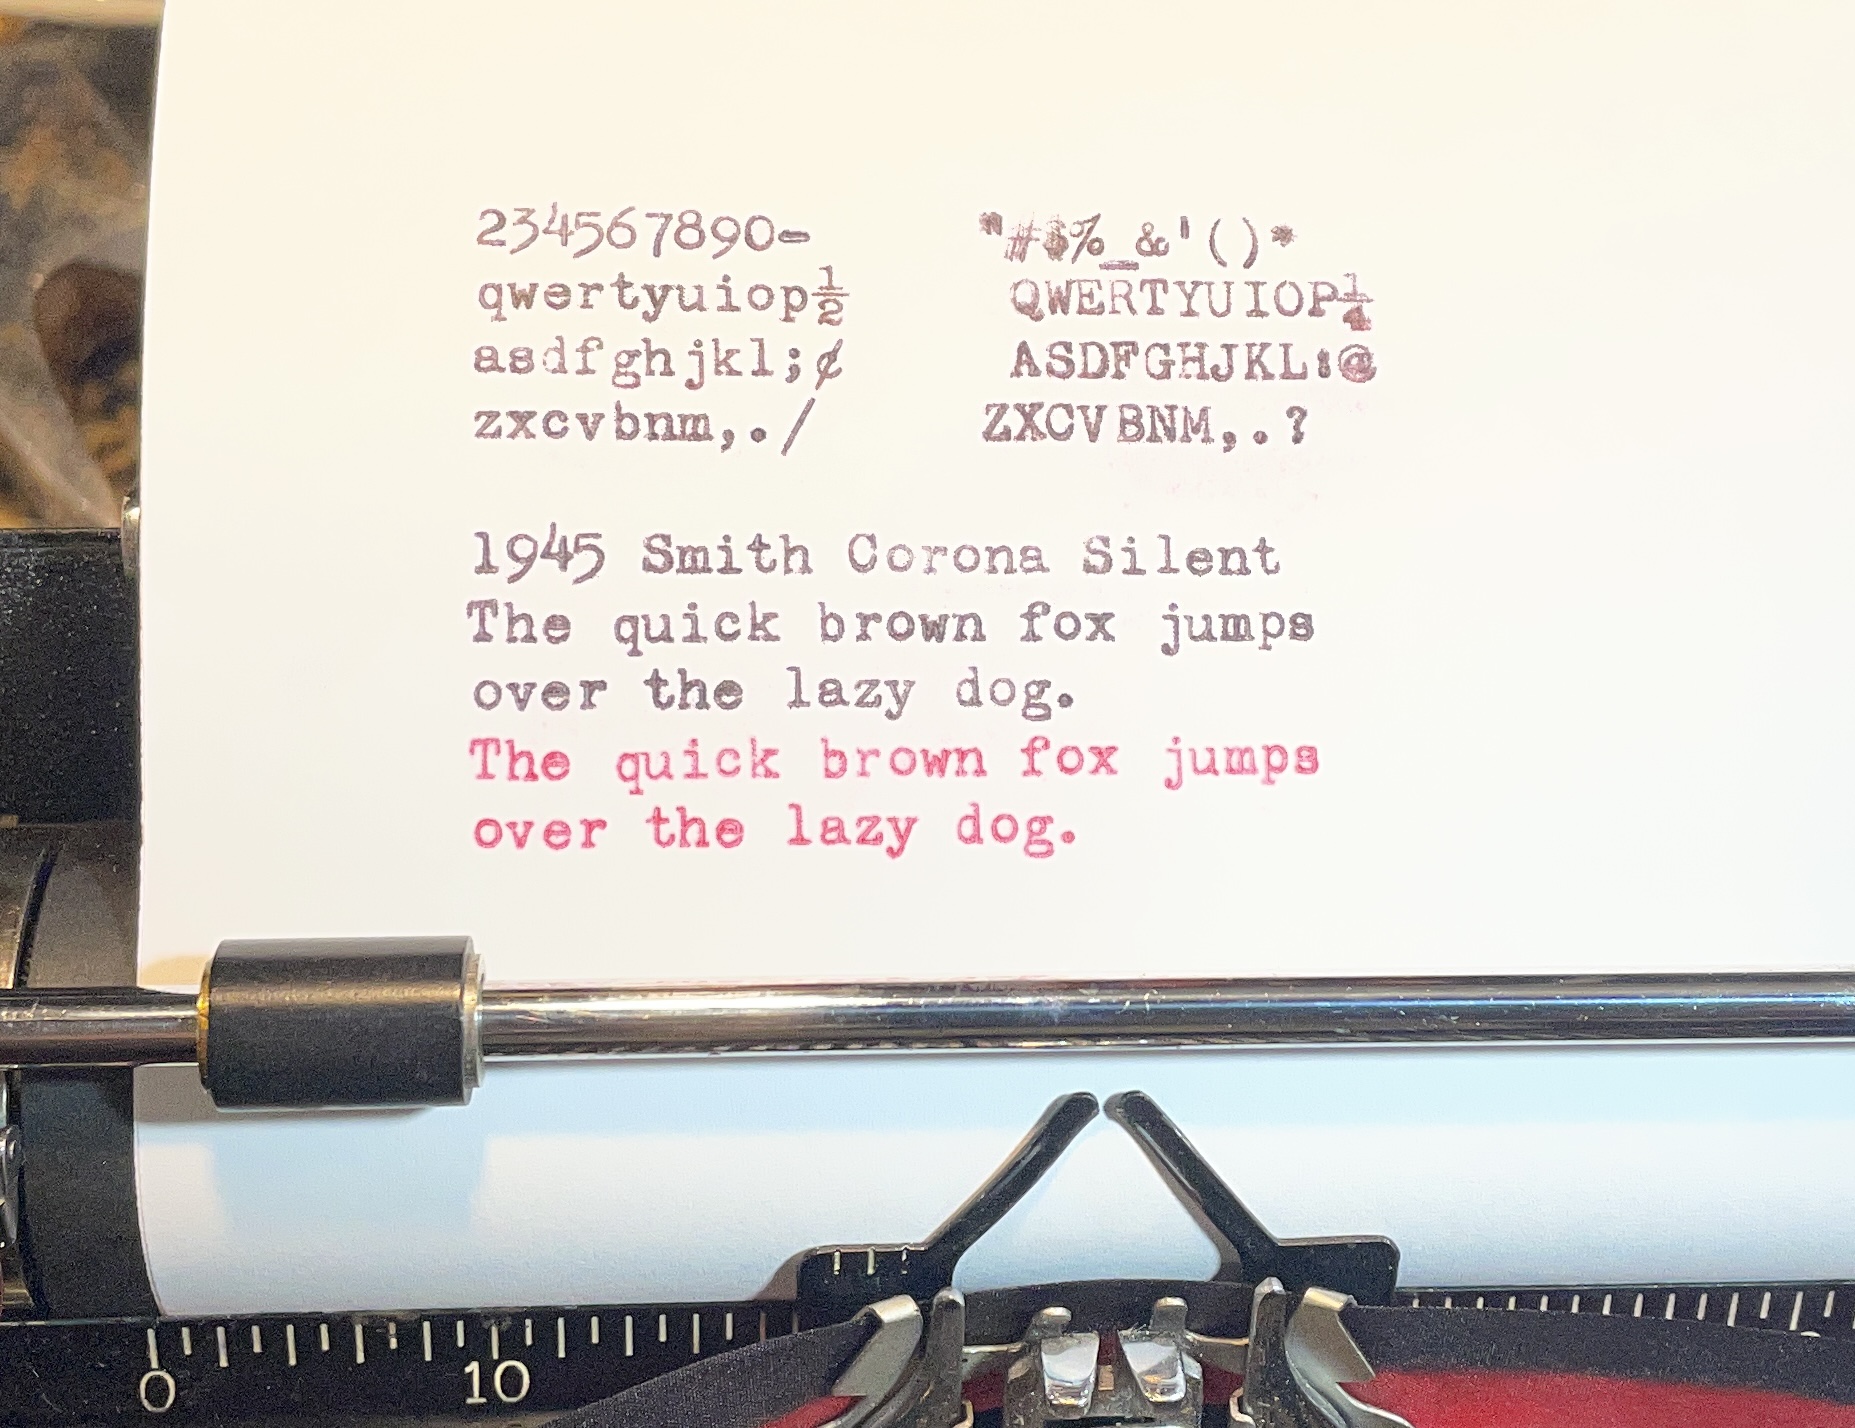 234567890-    "#$%_&'()*
qwertyuiop½    QWERTYUIOP¼
asdfghjkl;¢    ASDFGHJKL:@
zxcvbnm,./    ZXCVBNM,.?
1945 Smith Corona Silent
The quick brown fox jumps
over the lazy dog.
The quick brown fox jumps
over the lazy dog.
0 10